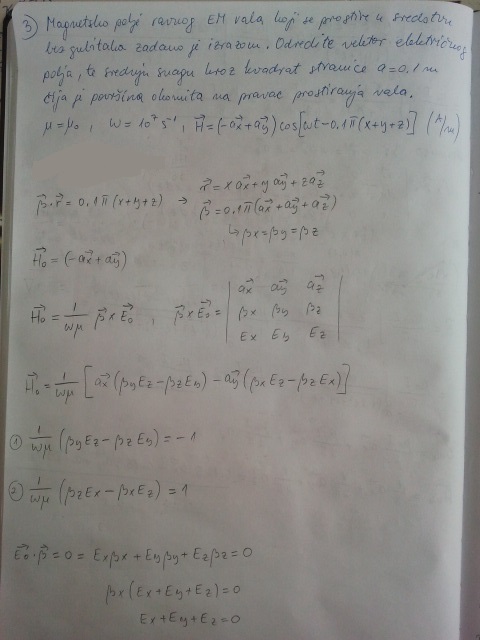 3) Magnetsko polje ravnog EM vala koji se prostire u sredstvu
bez gubitaka zadano je izrazom. Odredite vektor električnog
polja, te srednju snagu kroz kvadrat stranice a=0,1 m
čija je površina okomita na pravac prostiranja vala.
μ=μ₀ , ω=10⁷ s⁻¹ , H⃗=(-a⃗x+a⃗y)cos[ωt-0.1π(x+y+z)] (A/m)
β⃗·r⃗=0.1π(x+y+z) → r⃗=x a⃗x+y a⃗y+z a⃗z
β⃗=0.1π(a⃗x+a⃗y+a⃗z)
↳ βx=βy=βz
H⃗₀=(-a⃗x+a⃗y)
H⃗₀= 1/ωμ β⃗×E⃗₀ , β⃗×E⃗₀= | a⃗x a⃗y a⃗z |
| βx βy βz |
| Ex Ey Ez |
H⃗₀= 1/ωμ [a⃗x(βyEz-βzEy)-a⃗y(βxEz-βzEx)]
① 1/ωμ (βyEz-βzEy)=-1
② 1/ωμ (βzEx-βxEz)=1
E⃗₀·β⃗=0= Exβx+Eyβy+Ezβz=0
βx(Ex+Ey+Ez)=0
Ex+Ey+Ez=0